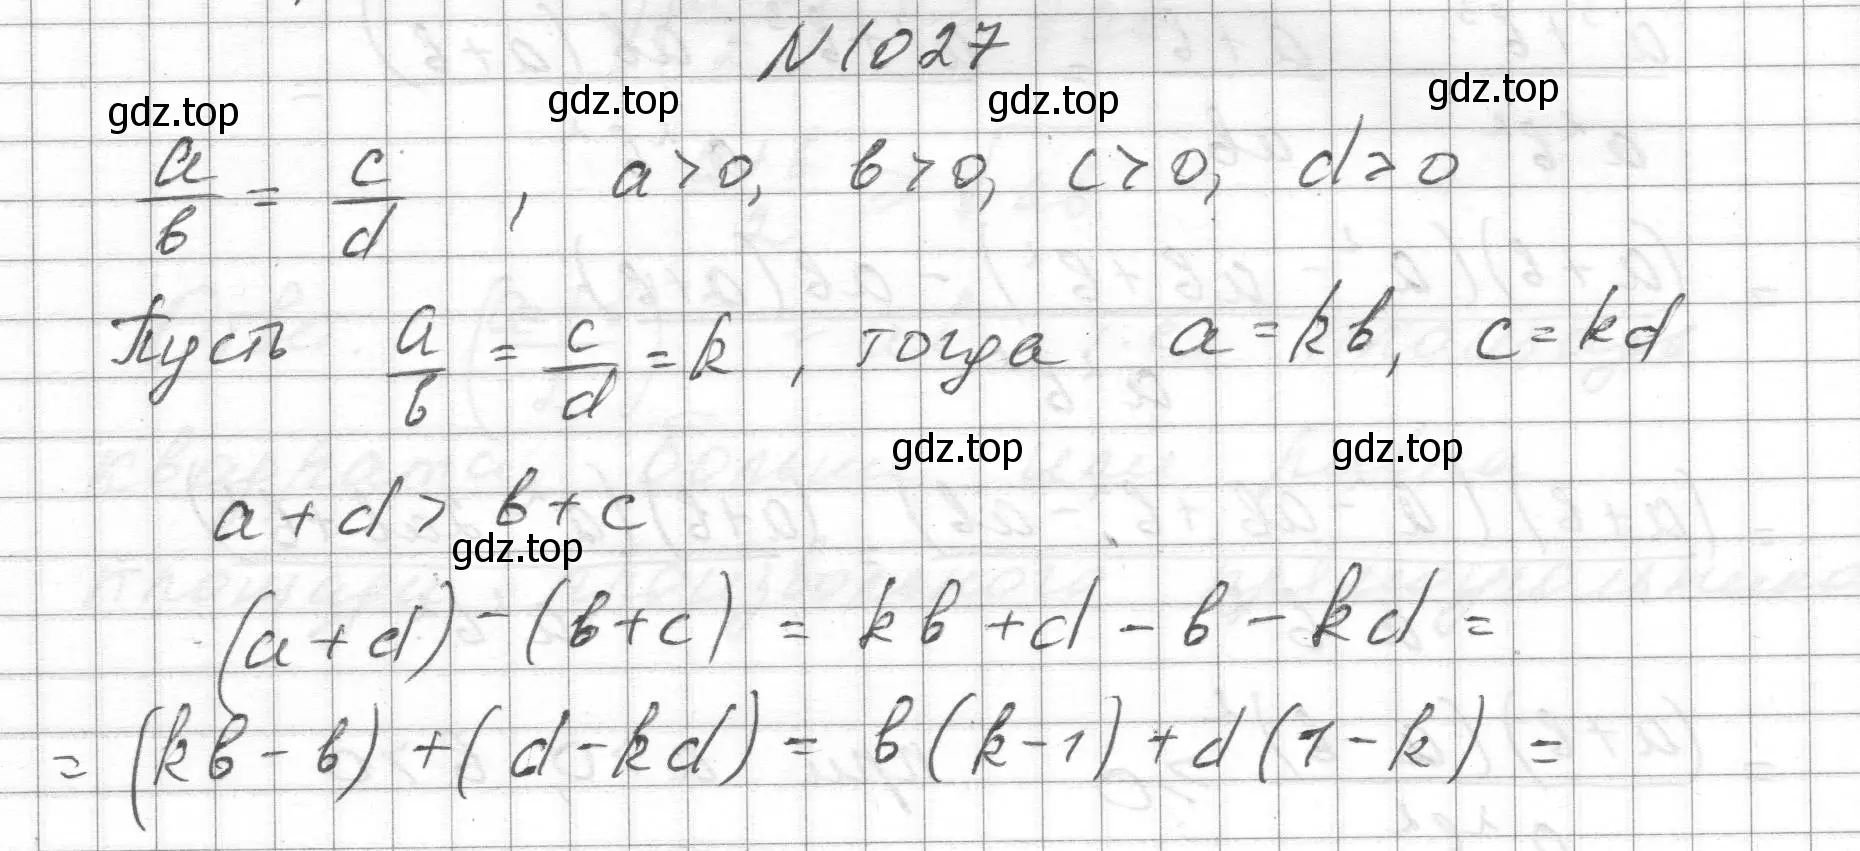 N 1027
gdz.top gdz.top gdz.top gdz.top
a/b = c/d, a>0, b>0, c>0, d>0
Пусть a/b = c/d = k, тогда a=kb, c=kd
gdz.top gdz.top
a+d > b+c
gdz.top
(a+d)-(b+c) = kb+d-b-kd =
= (kb-b)+(d-kd) = b(k-1)+d(1-k) =